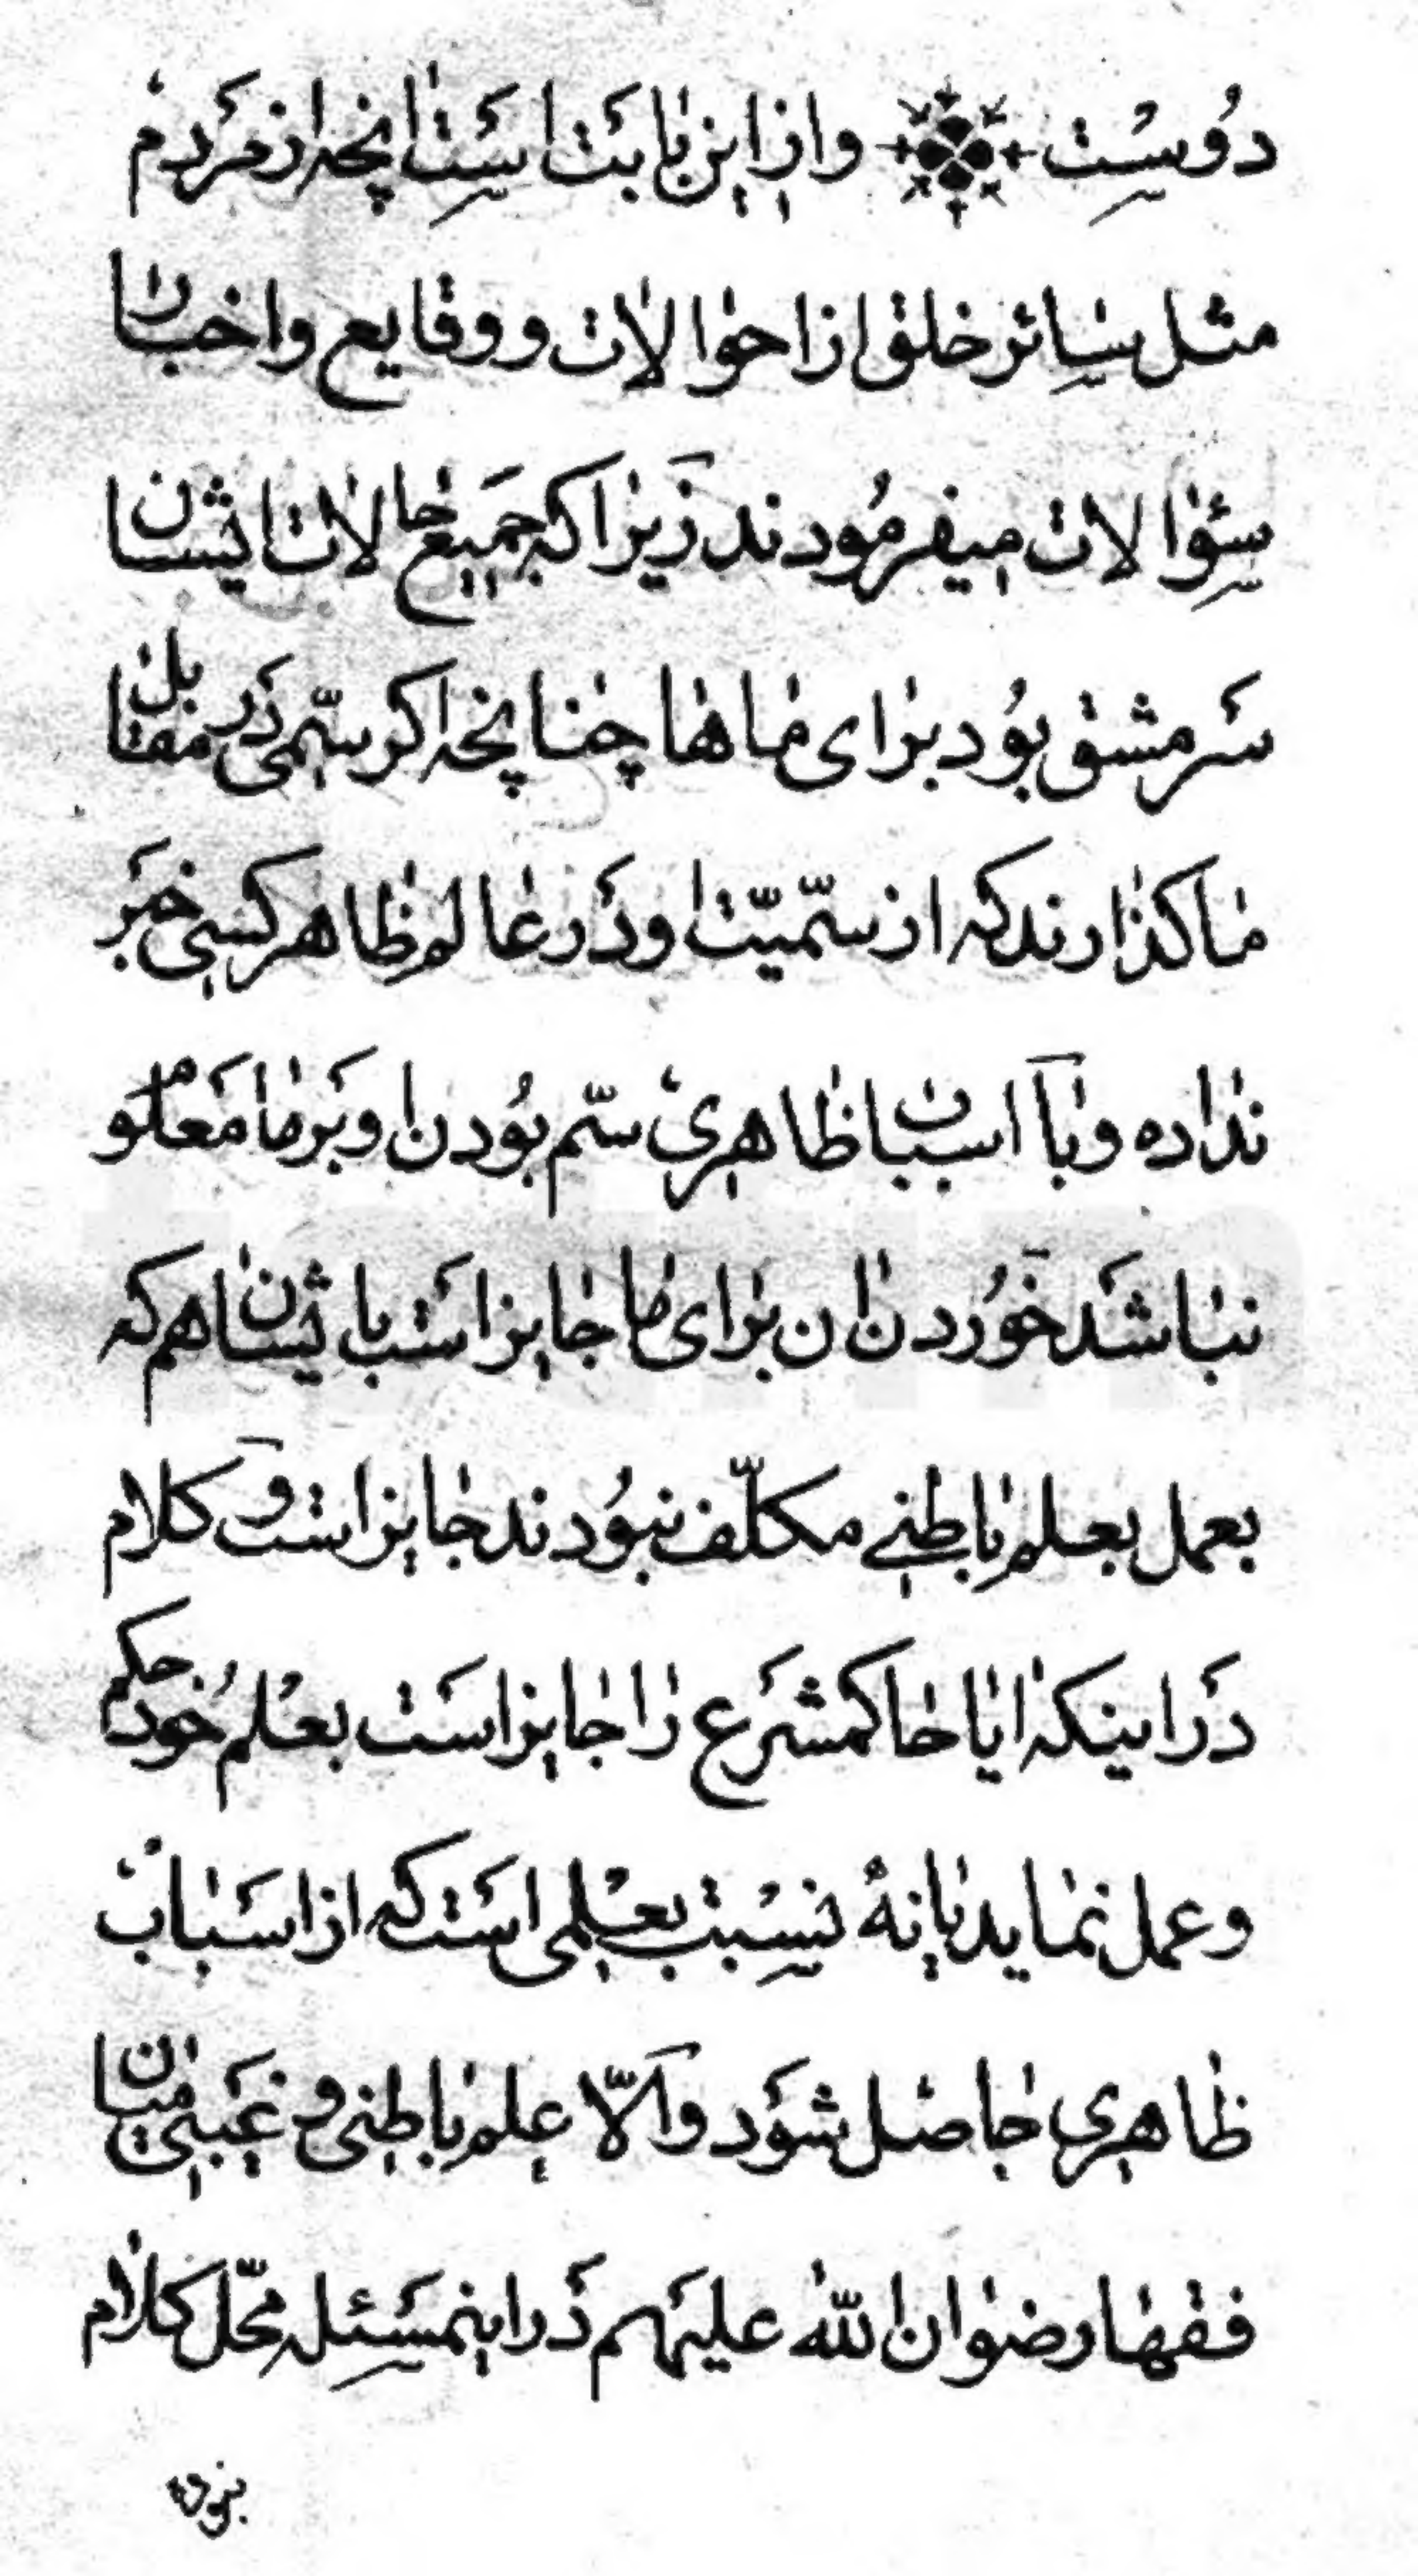 دُوسْت وازاین بابَت اسَت انچه از مَردم
مثل سائر خلق از احوالات و وقایع واخبار
سئوالات میفرمُودند زیراکه جَمیع حالات ایشان
سَرمشق بُود برای ماها چنانچه اکر سمّی دَر مقابل
ما کذارند که از سمّیّت او دَر عالم ظاهر کسی خبَر
نداده و با اسباب ظاهری سمّ بُودن او بَر ما مَعلوم
نباشَد خوُردن ان برای ما جایز است بایشان هم که
بعمل بعلم باطنی مکلّف نبوُدند جایز است و کلام
دَر اینکه ایا حاکمشَرع را جایز اسَت بعْلم خوُد حکم
وعمل نماید یا نه نسِبْت بعْلمی اسَت که از اسَباب
ظاهری حاصل شوَد والّا عِلم باطنی و غَیبی میان
فقها رضوان الله علیهَم دَر اینمسَئله محّل کلام
نبوده